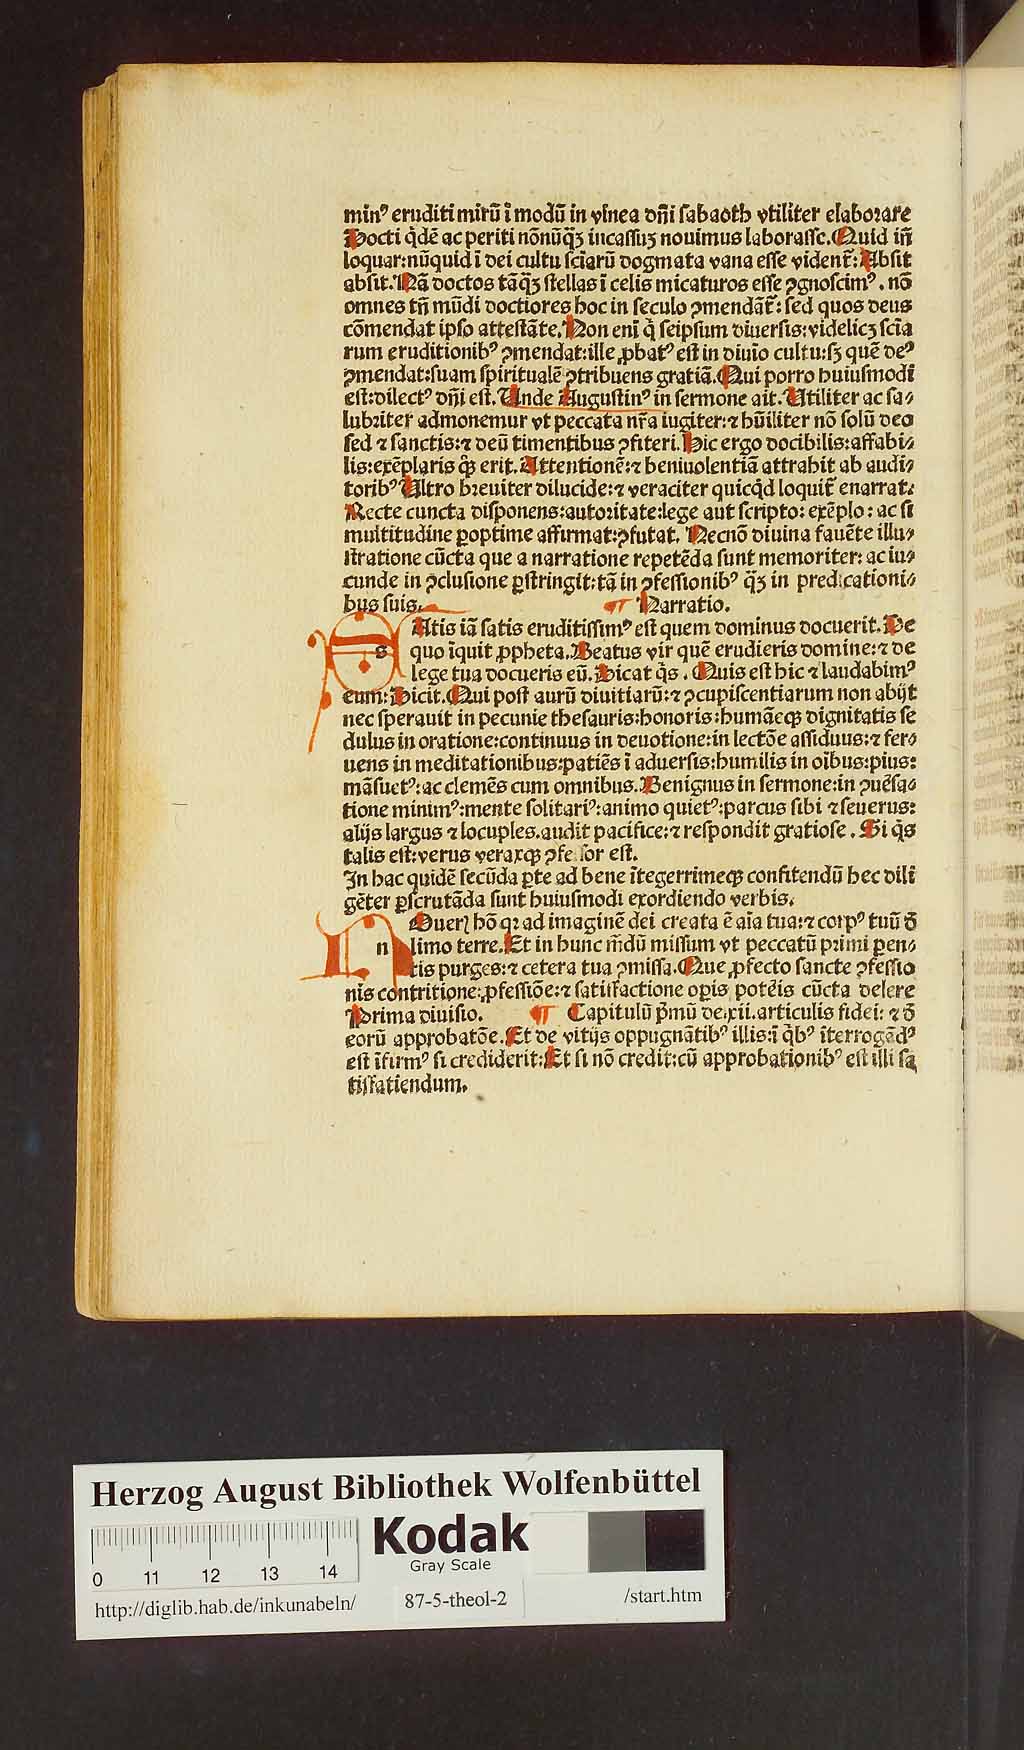 minꝰ eruditi mirū ī modū in vinea dn̄i sabaoth vtiliter elaborare
Docti q̄dē ac periti nōnūq̄ꝫ incassuꝫ nouimus laborasse. Quid in̄
loquar: nūquid ī dei cultu sciarū dogmata vana esse vident̄: Absit
absit. Nā doctos tāq̄ꝫ stellas ī celis micaturos esse ꝯgnoscimꝰ. nō
omnes tn̄ mūdi doctiores hoc in seculo ꝯmendāt̄: sed quos deus
cōmendat ipso attestāte. Non enī q̄ seipsum diuersis: videlicꝫ scia
rum eruditionibꝰ ꝯmendat: ille ꝓbatꝰ est in diuīo cultu: sꝫ quē deꝰ
ꝯmendat: suam spiritualē ꝯtribuens gratiā. Qui porro huiusmodī
est: dilectꝰ dn̄i est. Unde Augustinꝰ in sermone ait. Utiliter ac sa⸗
lubriter admonemur vt peccata nr̄a iugiter: ⁊ hūiliter nō solū deo
sed ⁊ sanctis: ⁊ deū timentibus ꝯfiteri. Hic ergo docibilis: affabi⸗
lis: exēplaris q̄ꝫ erit. Attentionē: ⁊ beniuolentiā attrahit ab audi⸗
toribꝰ Ultro breuiter dilucide: ⁊ veraciter quicq̄d loquit̄ enarrat.
Recte cuncta disponens: autoritate: lege aut scripto: exēplo: ac si
multitudine ꝑoptime affirmat: ꝯfutat. Necnō diuina fauēte illu⸗
stratione cūcta que a narratione repetēda sunt memoriter: ac iu⸗
cunde in ꝯclusione ꝑstringit: tā in ꝯfessionibꝰ q̄ꝫ in predicationi⸗
bus suis. ¶ Narratio.
s Atis iā satis eruditissimꝰ est quem dominus docuerit. De
quo īquit ꝓpheta. Beatus vir quē erudieris domine: ⁊ de
lege tua docueris eū. Dicat q̄s. Quis est hic ⁊ laudabimꝰ
eum: Dicit. Qui post aurū diuitiarū: ⁊ ꝯcupiscentiarum non abijt
nec sperauit in pecunie thesauris: honoris: humāeqꝫ dignitatis se
dulus in oratione: continuus in deuotione: in lectōe assiduus: ⁊ fer⸗
uens in meditationibus: patiēs ī aduersis: humilis in oībus: pius:
māsuetꝰ: ac clemēs cum omnibus. Benignus in sermone: in ꝯuēsa⸗
tione minimꝰ: mente solitariꝰ: animo quietꝰ: parcus sibi ⁊ seuerus:
alijs largus ⁊ locuples. audit pacifice: ⁊ respondit gratiose. Si q̄s
talis est: verus veraxqꝫ ꝯfessor est.
In hac quidē secūda ꝑte ad bene ītegerrimeqꝫ confitendū hec dili
gēter ꝑscrutāda sunt huiusmodi exordiendo verbis.
n Ouerꝭ hō qꝛ ad imaginē dei creata ē aīa tua: ⁊ corpꝰ tuū ð
limo terre. Et in hunc m̄dū missum vt peccatū primi ꝑen⸗
tis purges: ⁊ cetera tua ꝯmissa. Que ꝓfecto sancte ꝯfessio
nis contritione: ꝓfessiōe: ⁊ satisfactione oꝑis potēis cūcta delere
Prima diuisio. ¶ Capitulū p̄mū de. xii. articulis fidei: ⁊ ð
eorū approbatōe. Et de vitijs oppugnātibꝰ illis: ī q̄bꝰ īterrogādꝰ
est īfirmꝰ si crediderit: Et si nō credit: cū approbationibꝰ est illi sa
tisfatiendum.
Herzog August Bibliothek Wolfenbüttel
Kodak
Gray Scale
0 11 12 13 14
http://diglib.hab.de/inkunabeln/ 87-5-theol-2 /start.htm